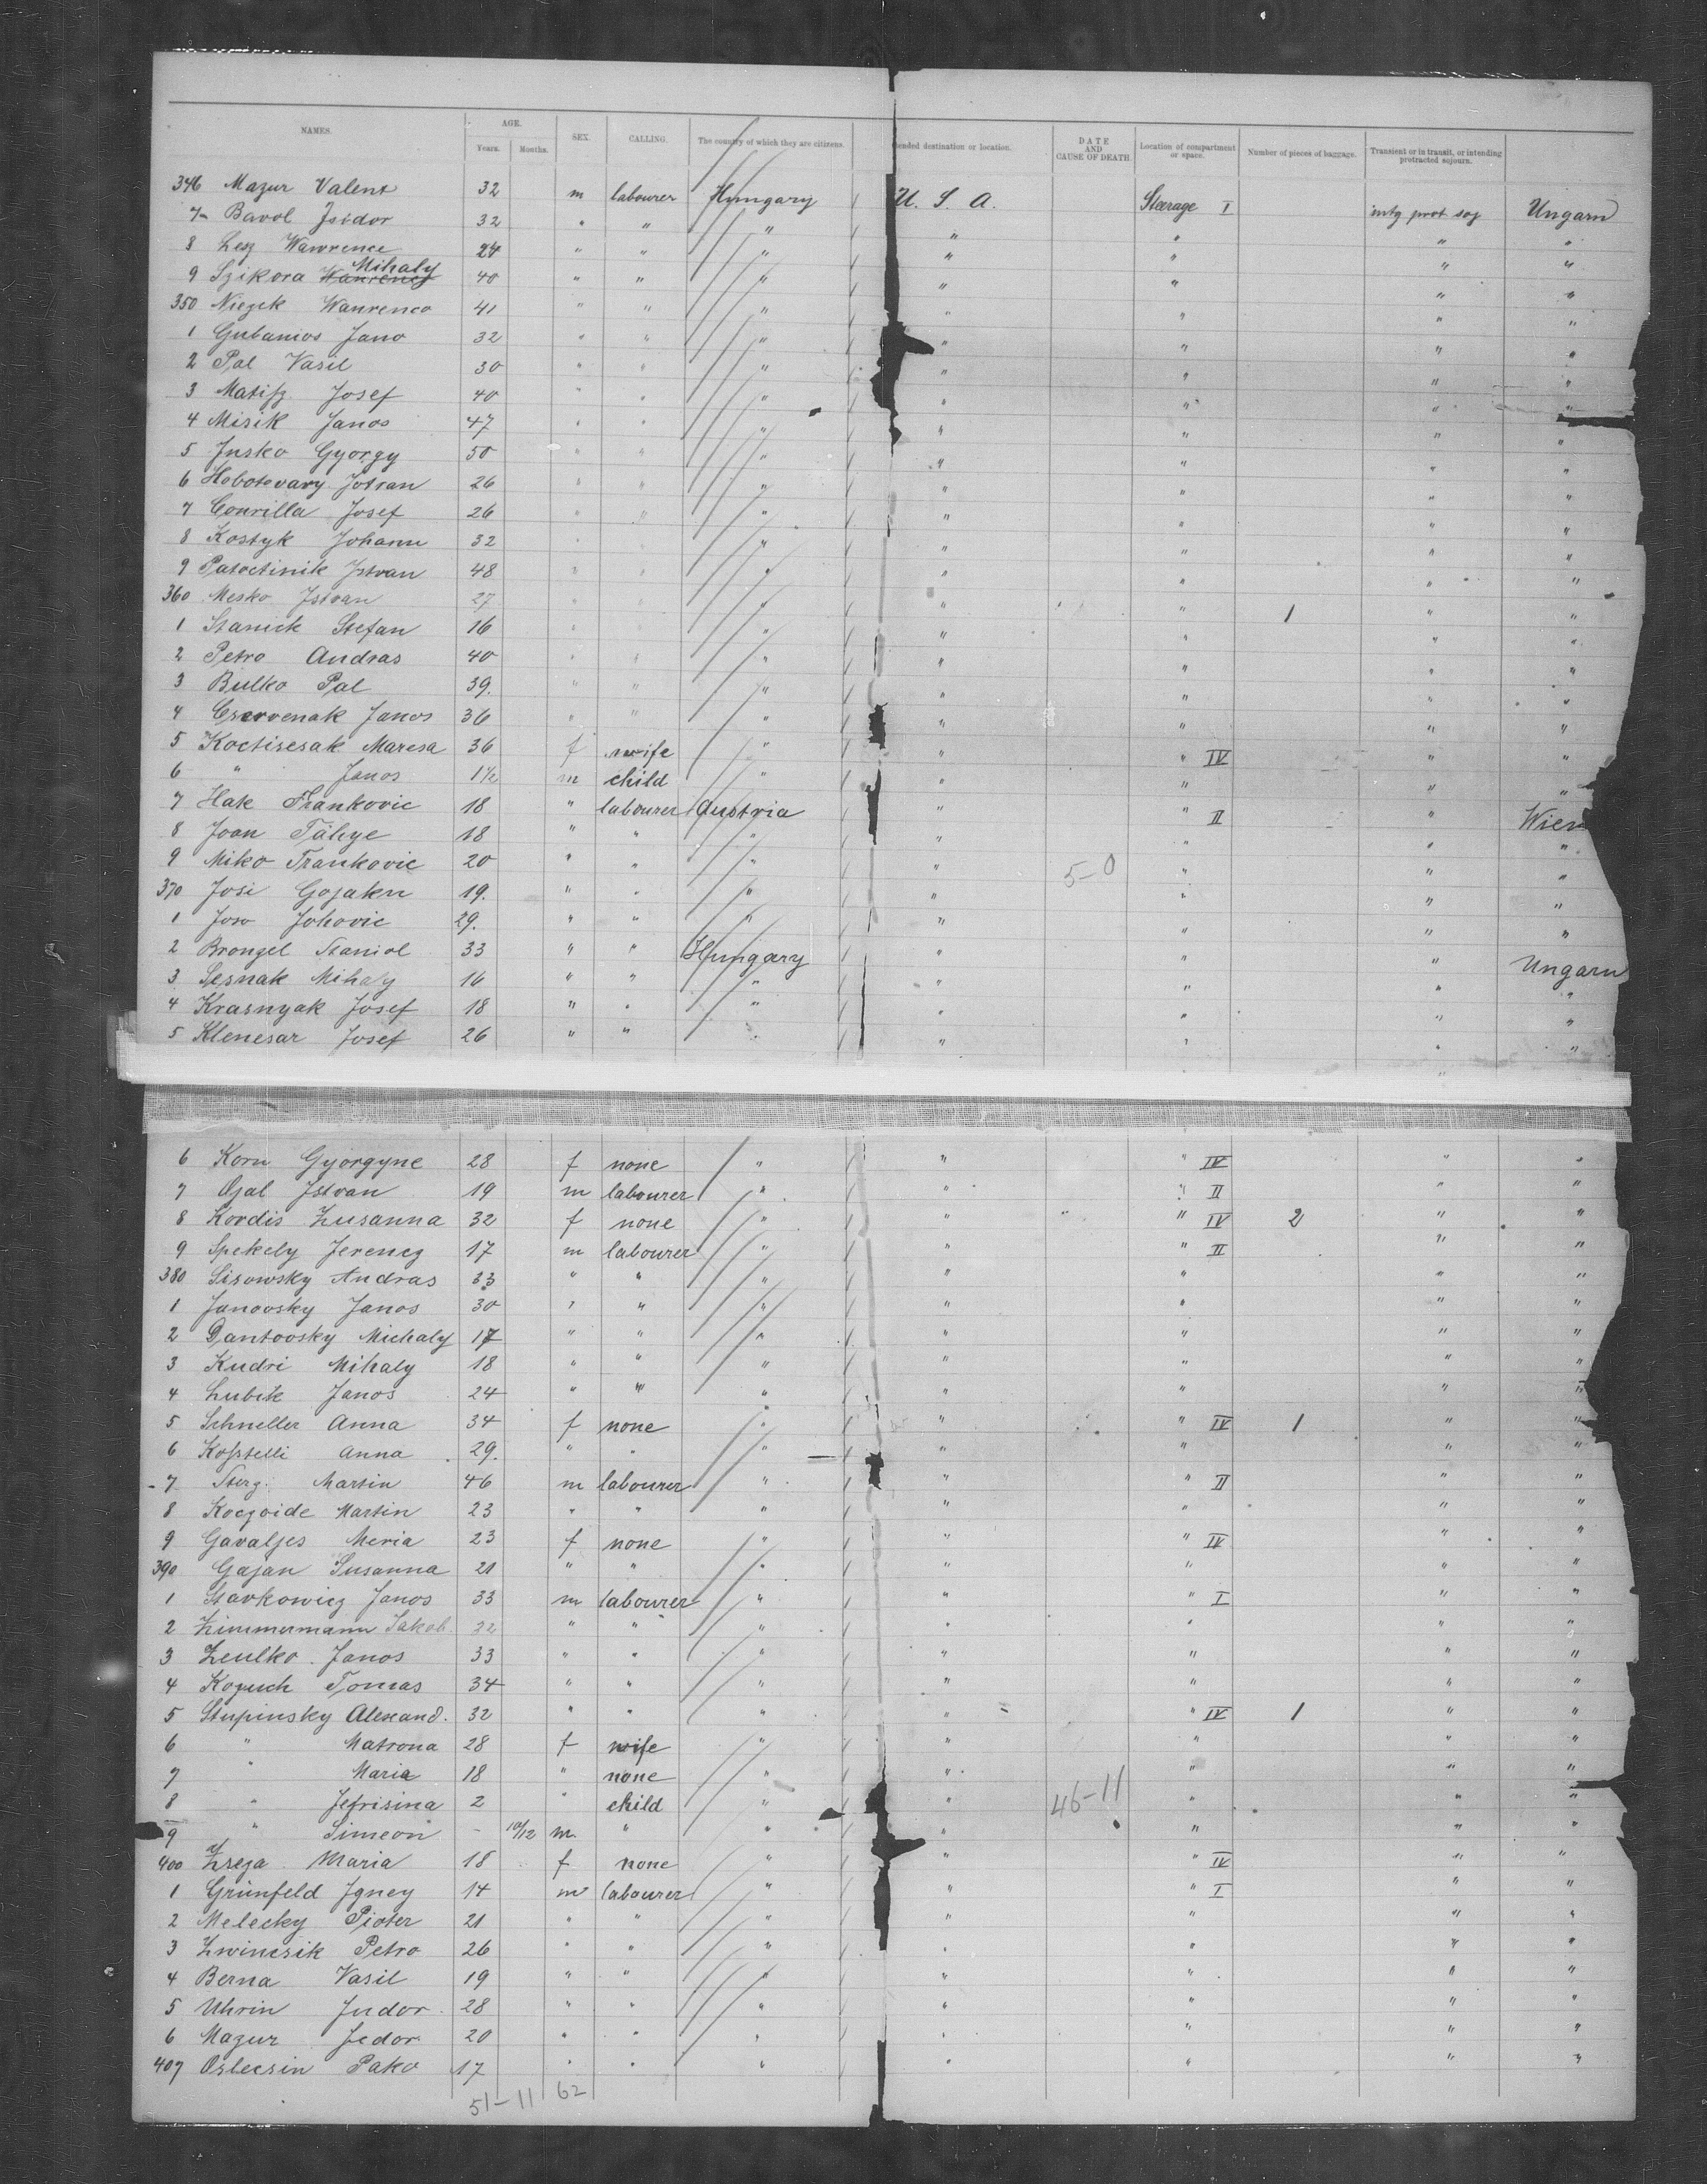 NAMES. AGE. SEX. CALLING. The country of which they are citizens. ended destination or location. DATE AND CAUSE OF DEATH. Location of compartment or space. Number of pieces of baggage. Transient or in transit, or intending protracted sojourn.
Years. Months.
346 Mazur Valent 32 m labourer Hungary U. S. A. Steerage I intg prot soj Ungarn
7 Bavol Isidor 32 " " " " " " "
8 Lesz Wawrence 24 " " " " " " "
9 Szikora Mihaly 40 " " " " " " "
350 Niezek Wanrence 41 " " " " " " "
1 Gubanios Jano 32 " " " " " " "
2 Pal Vasil 30 " " " " " " "
3 Matisz Josef 40 " " " " " " "
4 Misik Janos 47 " " " " " " "
5 Jusko Gyorgy 50 " " " " " " "
6 Hobotovary Jstvan 26 " " " " " " "
7 Courilla Josef 26 " " " " " " "
8 Kostyk Johann 32 " " " " " " "
9 Patoctinik Jstvan 48 " " " " " " "
360 Mesko Jstvan 27 " " " " " 1 " "
1 Stanick Stefan 16 " " " " " " "
2 Petro Andras 40 " " " " " " "
3 Bulko Pal 39. " " " " " " "
4 Cservenak Janos 36 " " " " " " "
5 Koctisesak Maresa 36 f wife " " " IV " "
6 " Janos 1½ m child " " " " "
7 Hate Frankovic 18 " labourer Austria " " II " Wien
8 Joan Tähye 18 " " " " " " "
9 Miko Frankovic 20 " " " " 5-0 " " "
370 Josi Gojaken 19. " " " " " " "
1 Joso Johovic 29. " " " " " " "
2 Brongel Staniol 33 " " Hungary " " " Ungarn
3 Sesnak Mihaly 16 " " " " " " "
4 Krasnyak Josef 18 " " " " " " "
5 Klenesar Josef 26 " " " " " " "
6 Korn Gyorgyne 28 f none " " " IV " "
7 Ojal Jstvan 19 m labourer " " " II " "
8 Kordis Zusanna 32 f none " " " IV 2 " "
9 Spekely Ferencz 17 m labourer " " " II " "
380 Sisowsky Andras 33 " " " " " " "
1 Janovsky Janos 30 " " " " " " "
2 Dantovsky Michaly 17 " " " " " " "
3 Kudri Mihaly 18 " " " " " " "
4 Lubik Janos 24 " " " " " " "
5 Schneller Anna 34 f none " " " IV 1 " "
6 Kosstelli Anna 29. " " " " " " "
7 Sterg. Martin 46 m labourer " " " II " "
8 Koczoide Martin 23 " " " " " " "
9 Gavaljes Meria 23 f none " " " IV " "
390 Gajan Susanna 21 " " " " " " "
1 Starkowicz Janos 33 m labourer " " " I " "
2 Zimmermann Jakob 22 " " " " " " "
3 Zeulko Janos 33 " " " " " " "
4 Kozuch Tomas 34 " " " " " " "
5 Stupinsky Alexand. 32 " " " " " IV 1 " "
6 " Matrona 28 f wife " " " " "
7 " Maria 18 " none " " " " "
8 " Jefrisina 2 " child " " 46-11 " " "
9 " Simeon - 10/12 m. " " " " " "
400 Zseza Maria 18 f none " " " IV " "
1 Grünfeld Jgney 14 m labourer " " " I " "
2 Melecky Pioter 21 " " " " " " "
3 Zwincsik Petro 26 " " " " " " "
4 Berna Vasil 19 " " " " " " "
5 Uhrin Judor 28 " " " " " " "
6 Mazur Fedor 20 " " " " " " "
407 Oslecsin Pako 17 " " " " " " "
51-11 62